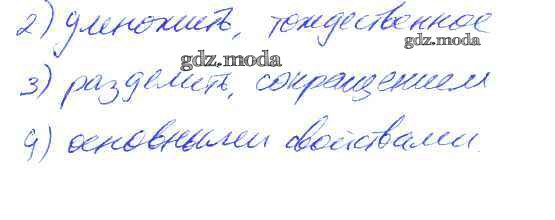 2) умножить, тождественное
gdz.moda
gdz.moda
3) разделить, сокращением
4) основными свойствами.